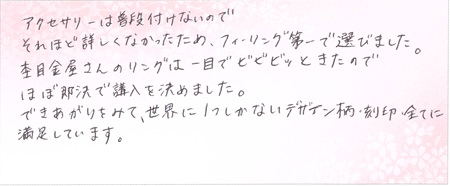 アクセサリーは普段付けないので
それほど詳しくなかったため、フィーリング第一で選びました。
杢目金屋さんのリングは一目でビビビッときたので
ほぼ即決で購入を決めました。
できあがりをみて、世界に1つしかないデザイン柄・刻印・全てに
満足しています。